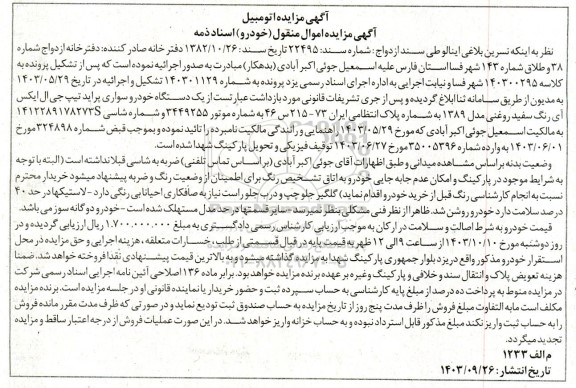 آگهی مزایده اتومبیل
آگهی مزایده اموال منقول (خودرو) اسناد ذمه
نظر به اینکه نسرین بلاغی اینالو طی سند ازدواج: شماره سند: ۲۲۴۹۵ تاریخ سند: ۱۳۸۲/۱۰/۲۶ دفترخانه صادر کننده: دفترخانه ازدواج شماره
۳۸ و طلاق شماره ۱۴۳ شهر فسا استان فارس علیه اسمعیل جوئی اکبر آبادی (بدهکار) مبادرت به صدور اجرائیه نموده است که پس از تشکیل پرونده به
کلاسه ۱۴۰۳۰۰۲۹۵ شهر فسا و نیابت اجرایی به اداره اجرای اسناد رسمی یزد پرونده به شماره ۱۴۰۳۰۱۱۲۹ تشکیل و اجرائیه در تاریخ ۱۴۰۳/۰۵/۲۹
به مدیون از طریق سامانه ثنا ابلاغ گردیده و پس از جری تشریفات قانونی مورد بازداشت عبارتست از یک دستگاه خودرو سواری پراید تیپ جی ال ایکس
آی رنگ سفید روغنی مدل ۱۳۸۹ به شماره پلاک انتظامی ایران ۷۳ - ۲۱۵ س ۴۶ به شماره موتور ۳۴۴۹۲۵۵ و شماره شاسی S۱۴۱۲۲۸۹۱۷۸۲۷۳
به مالکیت اسمعیل جوئی اکبر آبادی که مورخ ۱۴۰۳/۰۵/۲۹ راهنمایی و رانندگی مالکیت نامبرده را تائید نموده و بموجب قبض شماره ۳۲۴۸۹۸ مورخ
۱۴۰۳/۰۶/۰۱ به وارده شماره ۳۵۰۰۵۳۹۶ مورخ ۱۴۰۳/۰۶/۲۷ توقیف فیزیکی و تحویل پارکینگ شهدا شده است.
وضعیت بدنه بر اساس مشاهده میدانی و طبق اظهارات آقای جوئی اکبر آبادی (بر اساس تماس تلفنی) ضربه به شاسی قبلا نداشته است (البته با توجه
به شرایط موجود در پارکینگ و امکان عدم جابه جایی خودرو به اتاق تشخیص رنگ برای اطمینان از وضعیت رنگ و ضربه پیشنهاد میشود خریدار محترم
نسبت به انجام کارشناسی رنگ قبل از خرید خودرو اقدام نماید) گلگیر جلو چپ و درب جلو راست نیاز به صافکاری احیانا بی رنگی دارد - لاستیکها در حد ۴۰
درصد سلامت دارد خودرو روشن شد. ظاهرا از نظر فنی مشکلی بنظر نمیرسد - سایر قسمتها در حد مدل مستهلک شده است - خودرو دو گانه سوز می باشد.
قیمت خودرو به شرط اصالت و سلامت در ارکان به موجب ارزیابی کارشناس رسمی دادگستری به مبلغ ۱.۷۰۰.۰۰۰.۰۰۰ ریال ارزیابی گردیده و در
روز دوشنبه مورخ ۱۴۰۳/۱۰/۱۰ از ساعت ۹ الی ۱۲ ظهر به قیمت پایه در قبال قسمتی از طلب، خسارات متعلقه، هزینه اجرایی و حق مزایده در محل
استقرار خودرو مذکور واقع در یزد بلوار جمهوری پارکینگ شهدا به مزایده گذاشته میشود و به بالاترین قیمت پیشنهادی نقدا فروخته خواهد شد. ضمنا
هزینه تعویض پلاک و انتقال سند و خلافی و پارکینگ و غیره بر عهده برنده مزایده خواهد بود. برابر ماده ۱۳۶ اصلاحی آئین نامه اجرایی اسناد رسمی شرکت
در مزایده منوط به پرداخت ده درصد از مبلغ پایه کارشناسی به حساب سپرده ثبت و حضور خریدار یا نماینده قانونی او در جلسه مزایده است. برنده مزایده
مکلف است مابه التفاوت مبلغ فروش را ظرف مدت پنج روز از تاریخ مزایده به حساب صندوق ثبت تودیع نماید و در صورتی که ظرف مدت مقرر مانده فروش
را به حساب ثبت واریز نکند مبلغ مذکور قابل استرداد نبوده و به حساب خزانه واریز خواهد شد. در این صورت عملیات فروش از درجه اعتبار ساقط و مزایده
تجدید میگردد.
م الف ۱۲۳۳
تاریخ انتشار: ۱۴۰۳/۰۹/۲۶